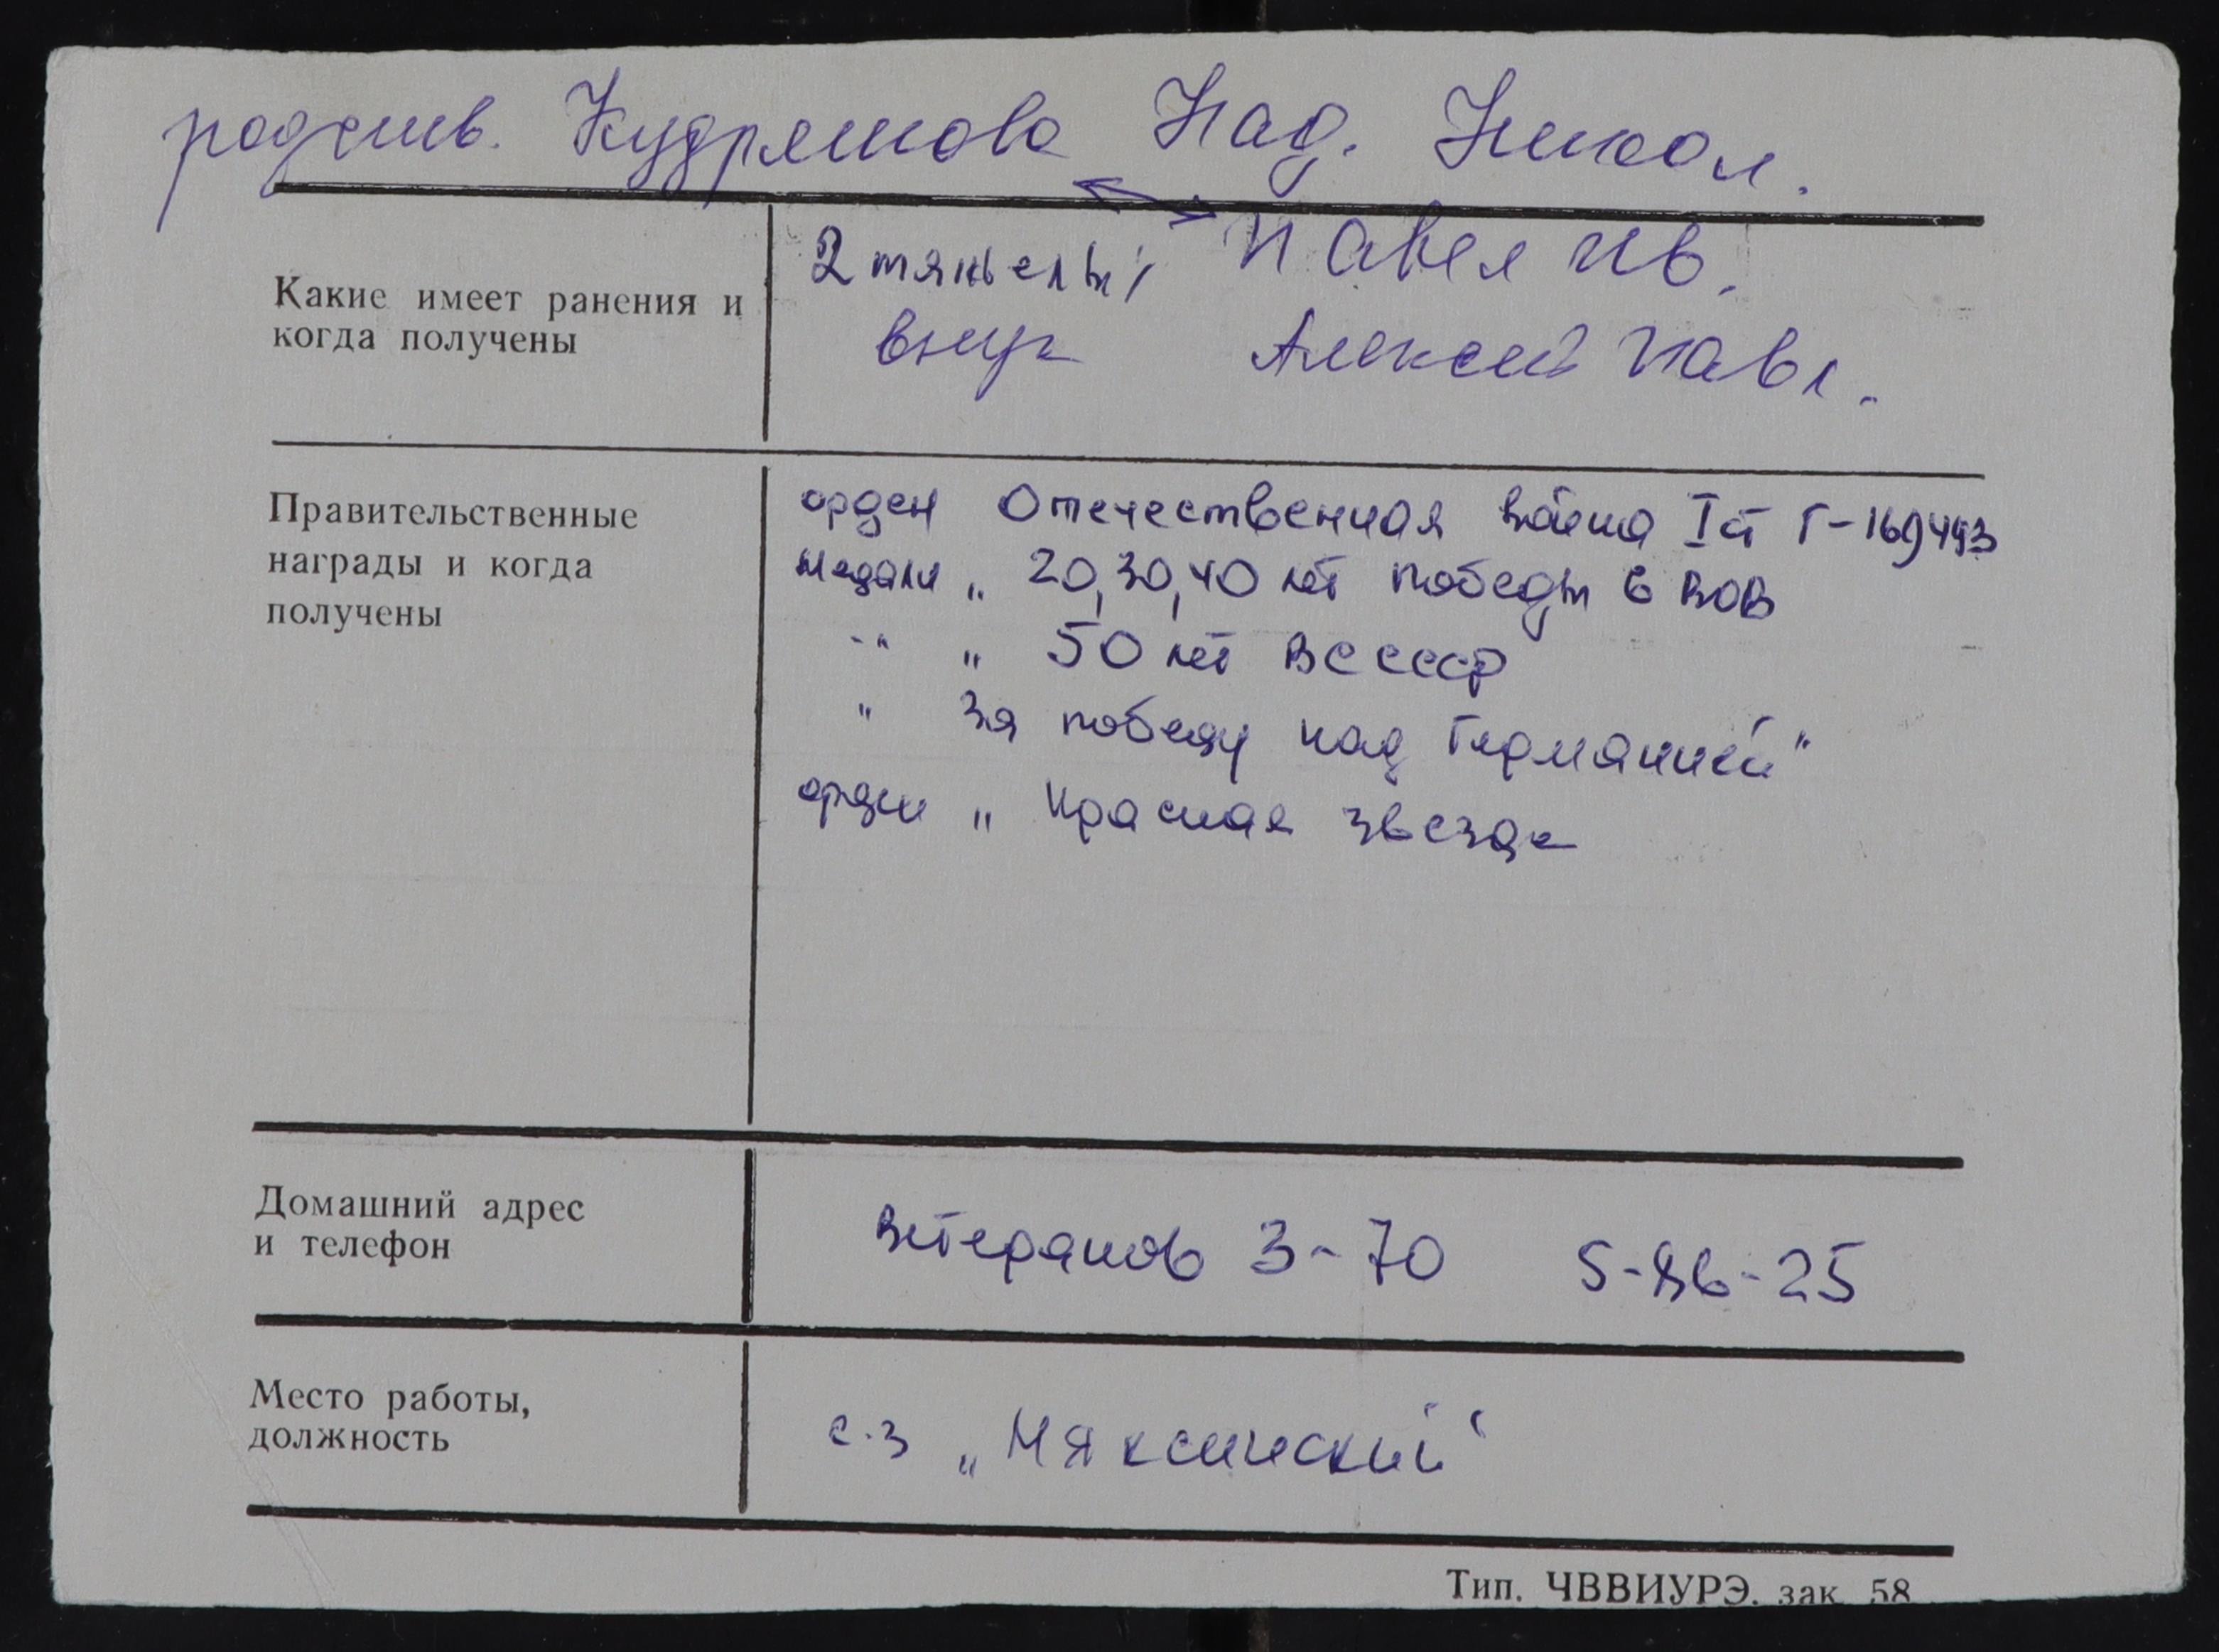 родств. Кудряшова Над. Никол.
Какие имеет ранения и
когда получены
2 тяжелых Павел Ив.
внук Алексей Павл.
Правительственные
награды и когда
получены
орден Отечественная война I ст Г-169493
Медали „ 20, 30, 40 лет победы в ВОВ
-"- „ 50 лет ВС СССР
" За победу над Германией"
орден „ Красная звезда
Домашний адрес
и телефон
Ветеранов 3-70 5-86-25
Место работы,
должность
с.з „Мяксинский"
Тип. ЧВВИУРЭ. зак. 58